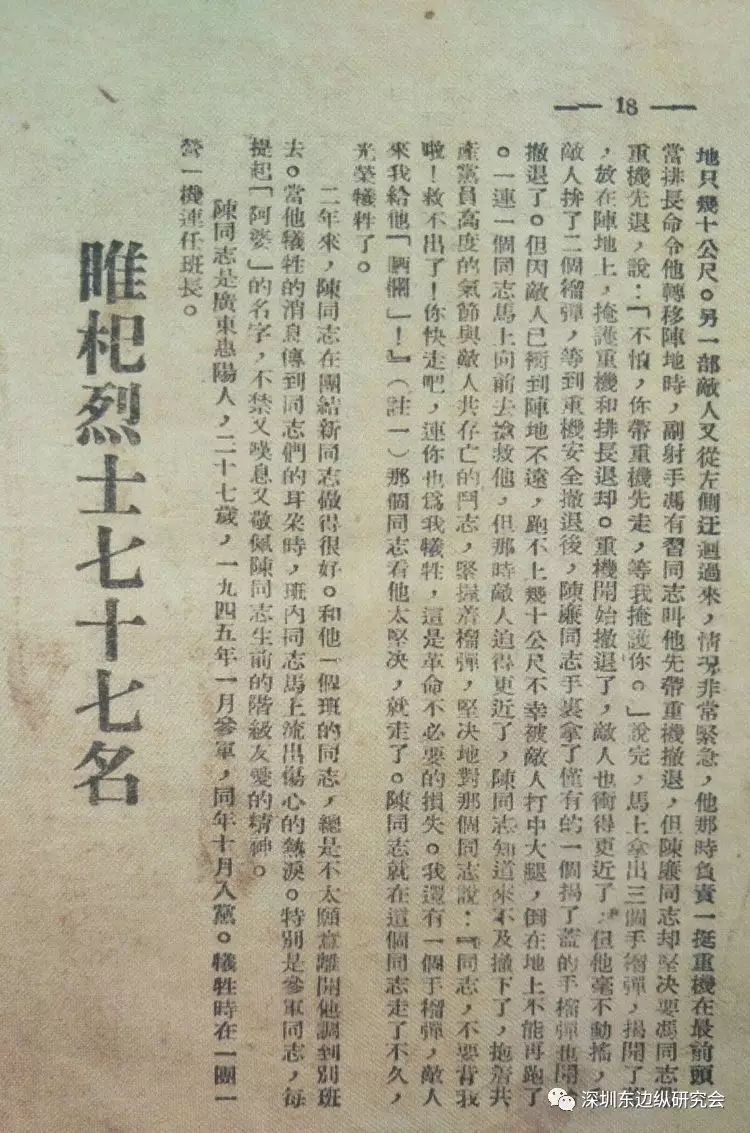 — 18 —
地只幾十公尺。另一部敵人又從左側迂迴過來，情況非常緊急，他那時負責一挺重機在最前頭
當排長命令他轉移陣地時，副射手馮有習同志叫他先帶重機撤退，但陳廉同志却堅决要馮同志
重機先退，說：「不怕，你帶重機先走，等我掩護你。」說完，馬上拿出三個手榴彈，揭開了
，放在陣地上，掩護重機和排長退却。重機開始撤退了，敵人也衝得更近了，但他毫不動搖，
敵人拚了二個榴彈，等到重機安全撤退後，陳廉同志手裏拿了僅有的一個揭了蓋的手榴彈也開
撤退了。但因敵人已衝到陣地不遠，跑不上幾十公尺不幸被敵人打中大腿，倒在地上不能再跑了
。一連一個同志馬上向前去搶救他，但那時敵人迫得更近了，陳同志知道來不及撤下了，抱着共
產黨員高度的氣節與敵人共存亡的鬥志，緊握着榴彈，堅决地對那個同志說：『同志，不要背我
啦！救不出了！你快走吧，連你也爲我犧牲，這是革命不必要的損失。我還有一個手榴彈，敵人
來我給他「晒欄」！』（註一）那個同志看他太堅决，就走了。陳同志就在這個同志走了不久，
光榮犧牲了。
二年來，陳同志在團結新同志做得很好。和他一個班的同志，總是不太願意離開他調到別班
去。當他犧牲的消息傳到同志們的耳朵時，班內同志馬上流出傷心的熱淚。特別是參軍同志，每
提起「阿婆」的名字，不禁又嘆息又敬佩陳同志生前的階級友愛的精神。
陳同志是廣東惠陽人，二十七歲，一九四五年一月參軍，同年十月入黨。犧牲時在一團一
營一機連任班長。
睢杞烈士七十七名
深圳东边纵研究会